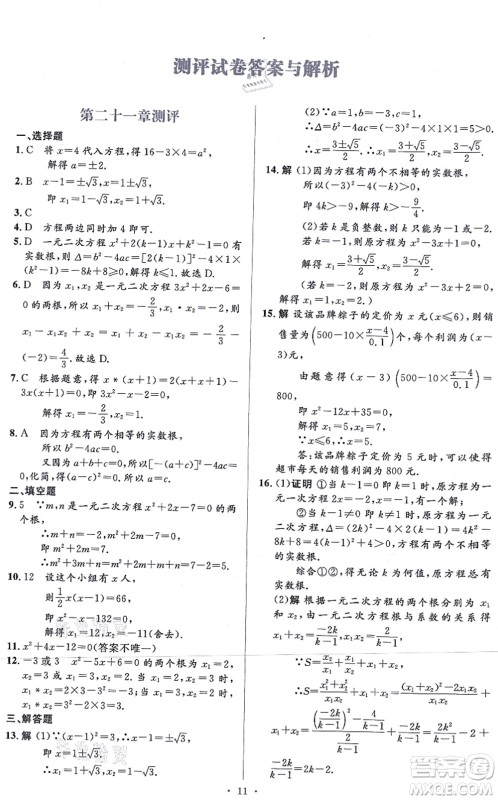 测评试卷答案与解析
第二十一章测评
一、选择题
1. C 将 x=4 代入方程,得 16-3×4=a²,
解得 a=±2.
2. B x-1=±√3,x=1±√3,
即 x₁=1+√3,x₂=1-√3.
3. C
4. D 方程两边同时加 4 即可.
5. D 一元二次方程 x²+2(k-1)x+k²-1=0 有
实数根,则 Δ=b²-4ac=[2(k-1)]²-4×1×
(k²-1)=-8k+8≥0,解得 k≤1.故选 D.
6. D 因为 x₁,x₂ 是一元二次方程 3x²-2x-2=
0 的两根,所以 x₁+x₂=-(-2/3)=2/3,x₁·x₂=-2/3,
(-2)=4/3.故选 D.
7. C 根据题意,得 x*(x+1)=2(x+1)·x=
解得 x₁=-2,x₂=1.
8. A 因为方程有两个相等的实数根,
所以 b²-4ac=0.
又因为 a+b+c=0,所以[-(a+c)]²-4ac
=0,化简,得(a-c)²=0,所以 a=c.
二、填空题
9. 5 ∵m,n 是一元二次方程 x²+2x-7=0 的两
个根,
∴m+n=-2,m²+2m-7=0,
∴m²+2m=7,
∴m²+3m+n=m²+2m+m+n=7-2=5.
10. 12 设这个小组有 x 人,
则 ½x(x-1)=66,
即 x²-x-132=0,
解得 x₁=12,x₂=-11(舍去).
11. x²+4x-12=0(答案不唯一)
12. -3或3 x²-5x+6=0 的两个根为 x₁=2,
x₂=3 或 x₁=3,x₂=2.当 x₁=2,x₂=3 时,
x₁*x₂=2×3-3²=-3;当 x₁=3,x₂=2 时,
x₁*x₂=3²-2×3=3.
三、解答题
13. 解 (1)∵x²-2x+1=5+1,∴(x-1)²=6,
即 x-1=±√6,
∴x₁=1+√6,x₂=1-√6.
(2)∵a=1,b=-3,c=1,
∴Δ=b²-4ac=(-3)²-4×1×1=5>0,
∴x=(3±√5)/2,即 x₁=(3+√5)/2,x₂=(3-√5)/2.
14. 解 (1)因为方程有两个不相等的实数根,
所以(-3)²-4(-k)>0,
即 4k>-9,解得 k>-9/4.
(2)若 k 是负整数,则 k 只能为-1 或-2.
若 k=-1,则原方程为 x²-3x+1=0,
解得 x₁=(3+√5)/2,x₂=(3-√5)/2.
若 k=-2,则原方程为 x²-3x+2=0,
解得 x₁=1,x₂=2.
15. 解 设该品牌粽子的定价为 x 元(x≤6),则销
售量为(500-10×(x-4)/0.1)个,每个利润为(x-
3)元,
由题意得(x-3)(500-10×(x-4)/0.1)=
800,
即 x²-12x+35=0,
解得 x₁=5,x₂=7.
∵x≤6,
∴x=5.
答:该品牌粽子定价为 5 元时,可以使得
超市每天的销售利润为 800 元.
16. (1)证明 ①当 k-1=0,即 k=1 时,方程为
一元一次方程 2x=-2,x=-1 是它的一个解;
②当 k-1≠0,即 k≠1 时,方程为一元二
次方程,Δ=(2k)²-4×2(k-1)=4k²-
8k+8=4(k-1)²+4>0,方程有两个不相等
的实数根.
综合①②,得无论 k 为何值,原方程总有
实数根.
(2)解 根据一元二次方程的两个根分别为
x₁和 x₂,由一元二次方程根与系数的关系得
x₁+x₂=-2k/(k-1),x₁·x₂=2/(k-1),
∵S=x₂/x₁+x₁/x₂+x₁+x₂,
∴S=(-2k/(k-1))²
x₁+x₂=(-2k/(k-1))
2k/(k-1)-2k/(k-1)=2k-2=2.
11